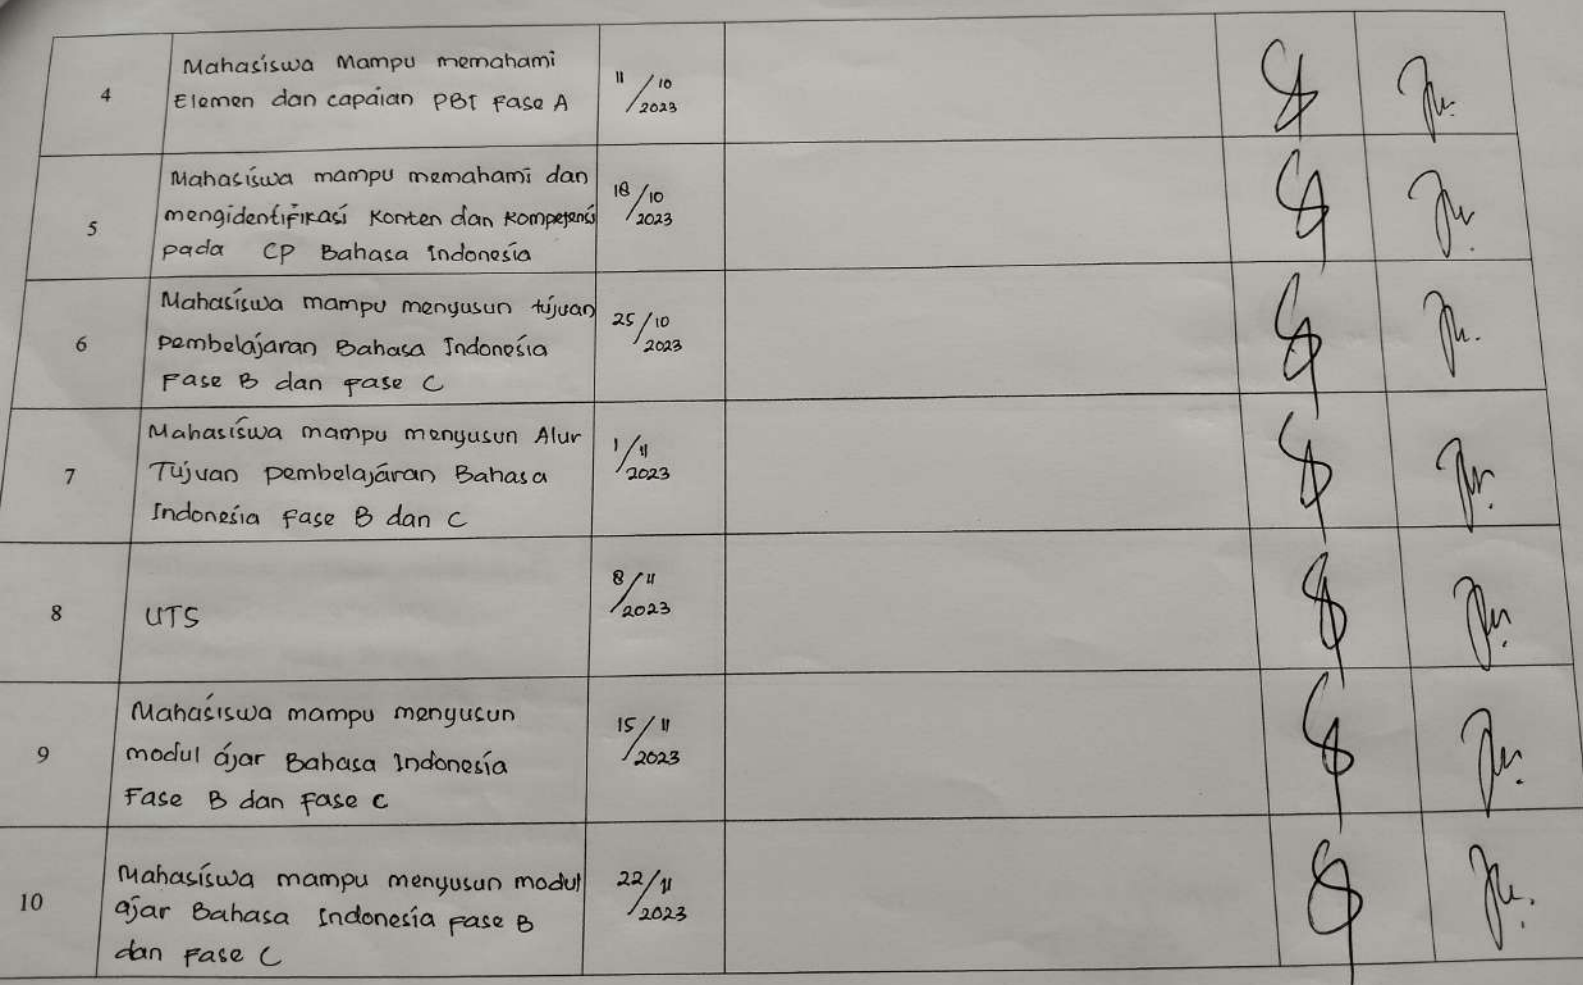 4
Mahasiswa Mampu memahami
Elemen dan capaian PBI Fase A
11/10
2023
5
Mahasiswa mampu memahami dan
mengidentifikasi Konten dan Kompetensi
pada CP Bahasa Indonesia
18/10
2023
6
Mahasiswa mampu menyusun tujuan
pembelajaran Bahasa Indonesia
Fase B dan Fase C
25/10
2023
7
Mahasiswa mampu menyusun Alur
Tujuan pembelajaran Bahasa
Indonesia Fase B dan C
1/11
2023
8
UTS
8/11
2023
9
Mahasiswa mampu menyusun
modul ajar Bahasa Indonesia
Fase B dan Fase C
15/11
2023
10
Mahasiswa mampu menyusun modul
ajar Bahasa Indonesia Fase B
dan Fase C
22/11
2023